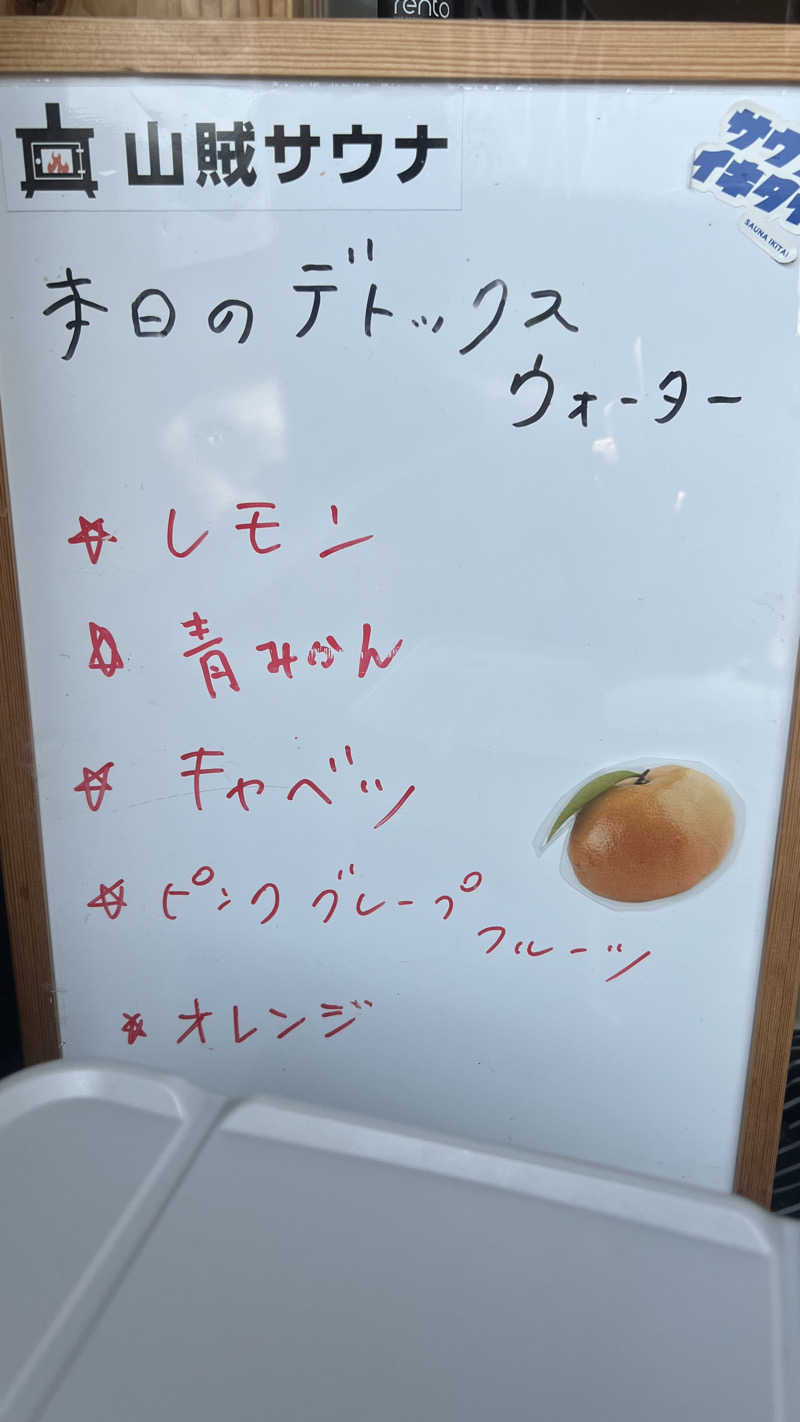 rento
山賊サウナ
サウナ
イキタイ
SAUNA IKITAI
本日のデトックス
ウォーター
☆ レモン
☆ 青みかん
☆ キャベツ
☆ ピンクグレープ
フルーツ
☆ オレンジ